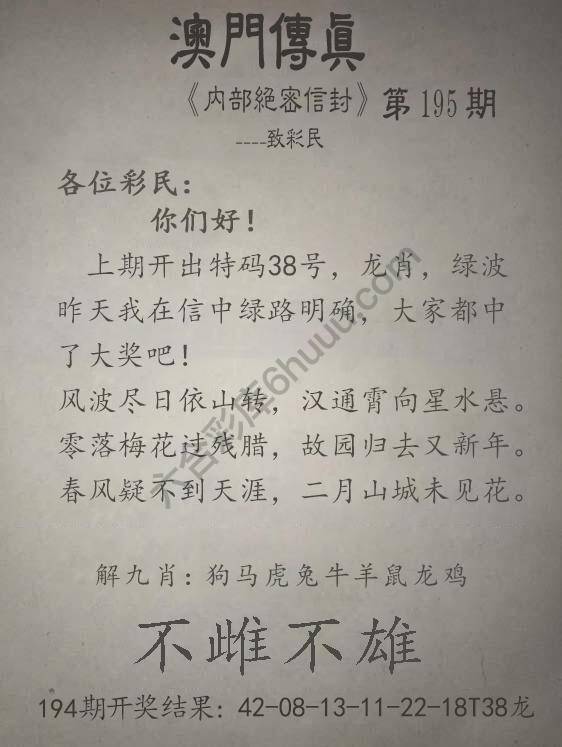 澳門傳真
《内部絕密信封》第195期
----致彩民
各位彩民：
你们好！
上期开出特码38号，龙肖，绿波
昨天我在信中绿路明确，大家都中
了大奖吧！
风波尽日依山转，汉通霄向星水悬。
零落梅花过残腊，故园归去又新年。
春风疑不到天涯，二月山城未见花。
六合彩库6huuu.com
解九肖：狗马虎兔牛羊鼠龙鸡
不雌不雄
194期开奖结果：42-08-13-11-22-18T38龙